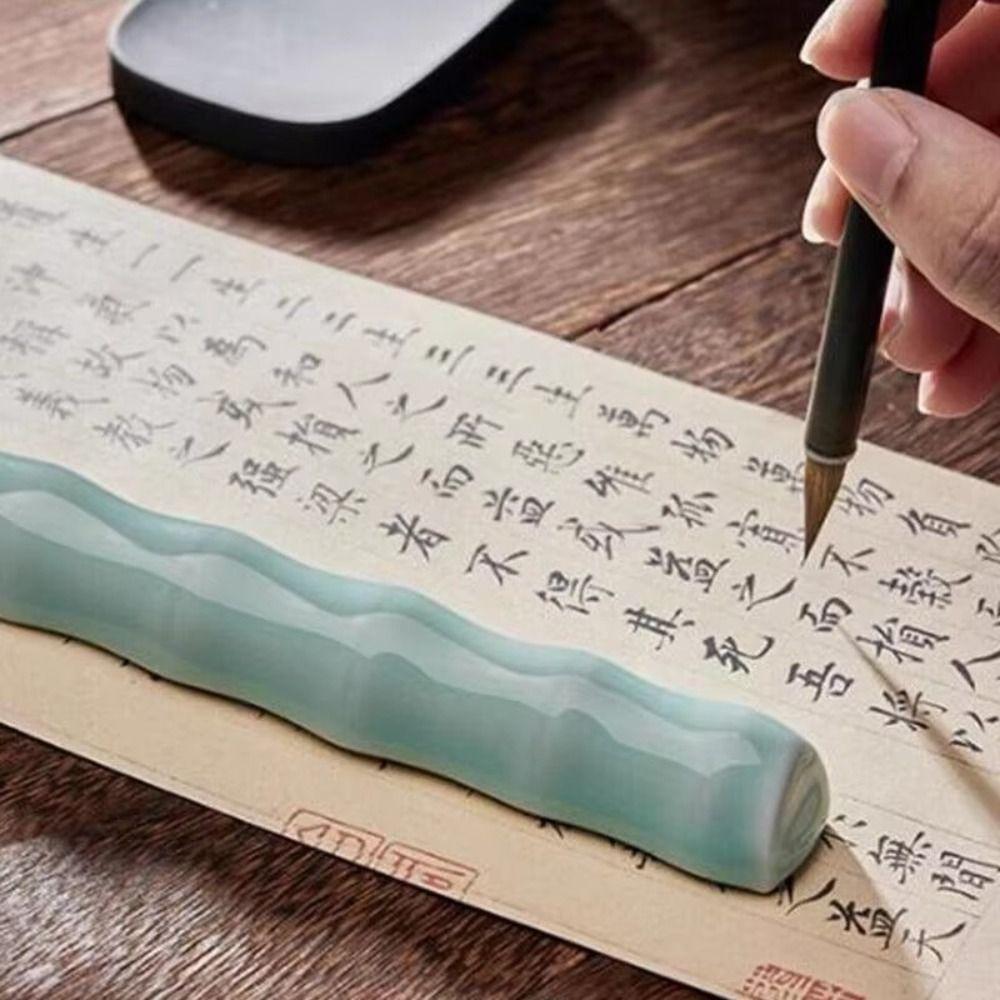 道生一一生二二生三三生萬物萬物負陰
沖氣以為和人之所惡惟孤寡不穀
稱故物或損之而益或益之而損人
義教之強梁者不得其死吾將以
無間
之益天